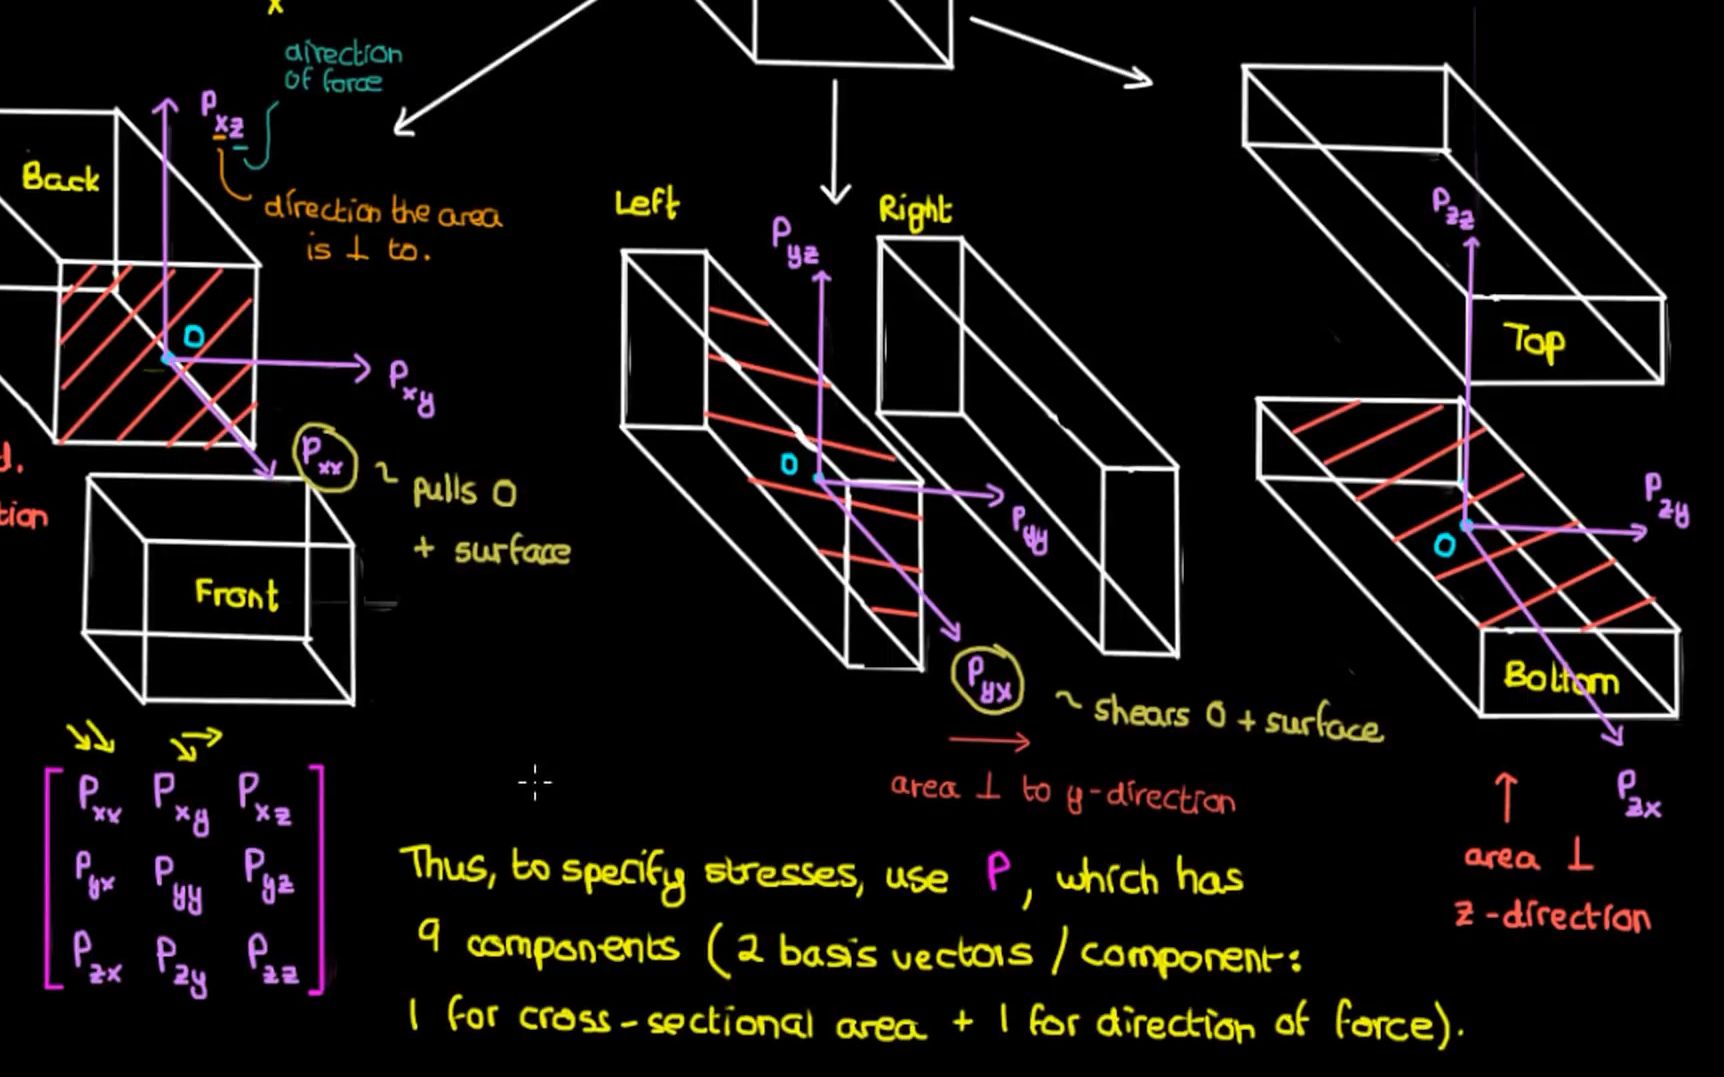 x
direction
of force
P_xz
Back
direction the area
is ⊥ to.
O
P_xy
P_xx
~ pulls O
+ surface
Front
Left
Right
P_yz
O
P_yy
P_yx
~ shears O + surface
area ⊥ to y-direction
P_zz
Top
P_zy
O
Bottom
P_zx
area ⊥
z-direction
P_xx P_xy P_xz
P_yx P_yy P_yz
P_zx P_zy P_zz
Thus, to specify stresses, use P, which has
9 components (2 basis vectors / component:
1 for cross-sectional area + 1 for direction of force).